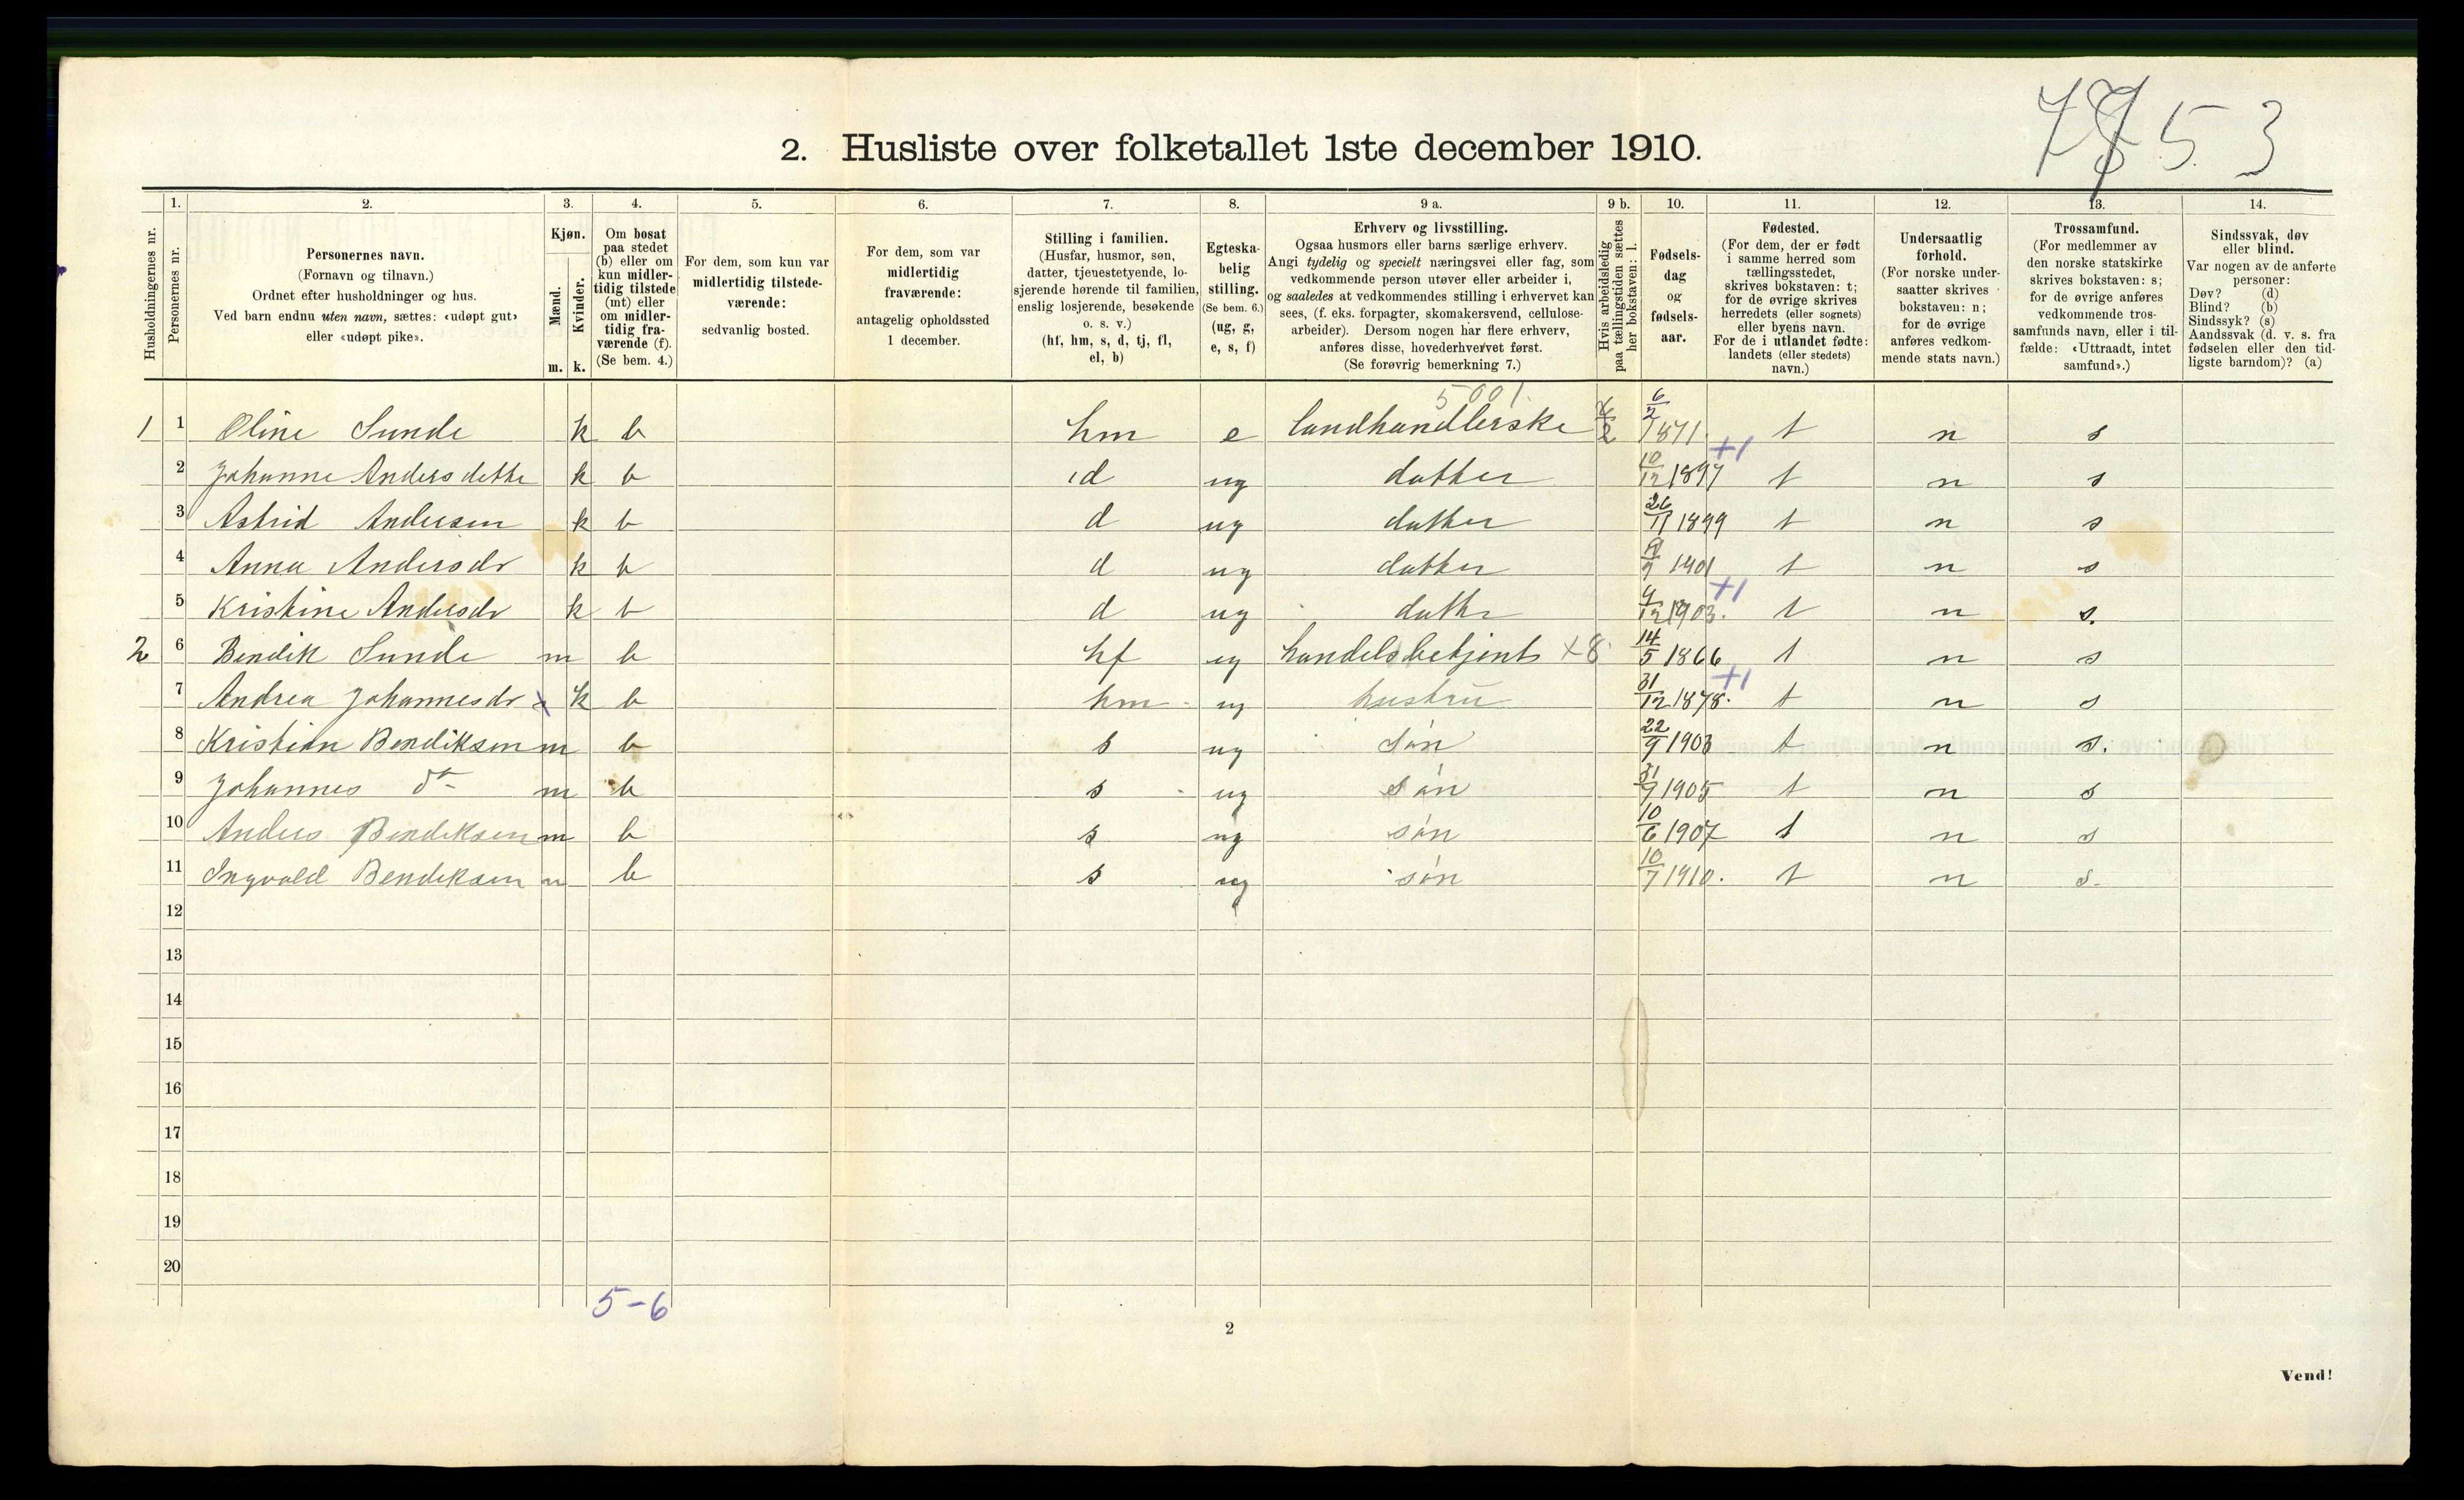 2. Husliste over folketallet 1ste december 1910.
5 3
Husholdningernes nr.
1. Personernes nr.
2. Personernes navn. (Fornavn og tilnavn.) Ordnet efter husholdninger og hus. Ved barn endnu uten navn, sættes: «udøpt gut» eller «udøpt pike».
3. Kjøn. Mænd. m. Kvinder. k.
4. Om bosat paa stedet (b) eller om kun midlertidig tilstede (mt) eller om midlertidig fraværende (f). (Se bem. 4.)
5. For dem, som kun var midlertidig tilstedeværende: sedvanlig bosted.
6. For dem, som var midlertidig fraværende: antagelig opholdssted 1 december.
7. Stilling i familien. (Husfar, husmor, søn, datter, tjenestetyende, losjerende hørende til familien, enslig losjerende, besøkende o. s. v.) (hf, hm, s, d, tj, fl, el, b)
8. Egteskabelig stilling. (Se bem. 6.) (ug, g, e, s, f)
9 a. Erhverv og livsstilling. Ogsaa husmors eller barns særlige erhverv. Angi tydelig og specielt næringsvei eller fag, som vedkommende person utøver eller arbeider i, og saaledes at vedkommendes stilling i erhvervet kan sees, (f. eks. forpagter, skomakersvend, cellulosearbeider). Dersom nogen har flere erhverv, anføres disse, hovederhvervet først. (Se forøvrig bemerkning 7.)
9 b. Hvis arbeidsledig paa tællingstiden sættes her bokstaven: l.
10. Fødselsdag og fødselsaar.
11. Fødested. (For dem, der er født i samme herred som tællingsstedet, skrives bokstaven: t; for de øvrige skrives herredets (eller sognets) eller byens navn. For de i utlandet fødte: landets (eller stedets) navn.)
12. Undersaatlig forhold. (For norske undersaatter skrives bokstaven: n; for de øvrige anføres vedkommende stats navn.)
13. Trossamfund. (For medlemmer av den norske statskirke skrives bokstaven: s; for de øvrige anføres vedkommende trossamfunds navn, eller i tilfælde: «Uttraadt, intet samfund».)
14. Sindssvak, døv eller blind. Var nogen av de anførte personer: Døv? (d) Blind? (b) Sindssyk? (s) Aandssvak (d. v. s. fra fødselen eller den tidligste barndom)? (a)
5001.
1 1 Oline Sunde k b hm e landhandlerske 6/2 1871 t n s
2 Johanne Andersdatter k b d ug datter 10/12 1897 +1 t n s
3 Astrid Andersen k b d ug datter 26/11 1899 t n s
4 Anna Andersdr k b d ug datter 1901 t n s
5 Kristine Andersdr k b d ug datter 9/12 1903. +1 t n s.
2 6 Bendik Sunde m b hf handelsbetjent x8 14/5 1866 t n s
7 Andrea Johannesdr x k b hm hustru 31/12 1878. +1 t n s
8 Kristian Bendiksen m b s ug søn 22/9 1903 t n s.
9 Johannes do m b s ug søn 31/9 1905 t n s
10 Anders Bendiksen m b s ug søn 10/6 1907 t n s
11 Ingvald Bendiksen m b s ug søn 10/7 1910. t n s.
12
13
14
15
16
17
18
19
20
5-6
2
Vend!